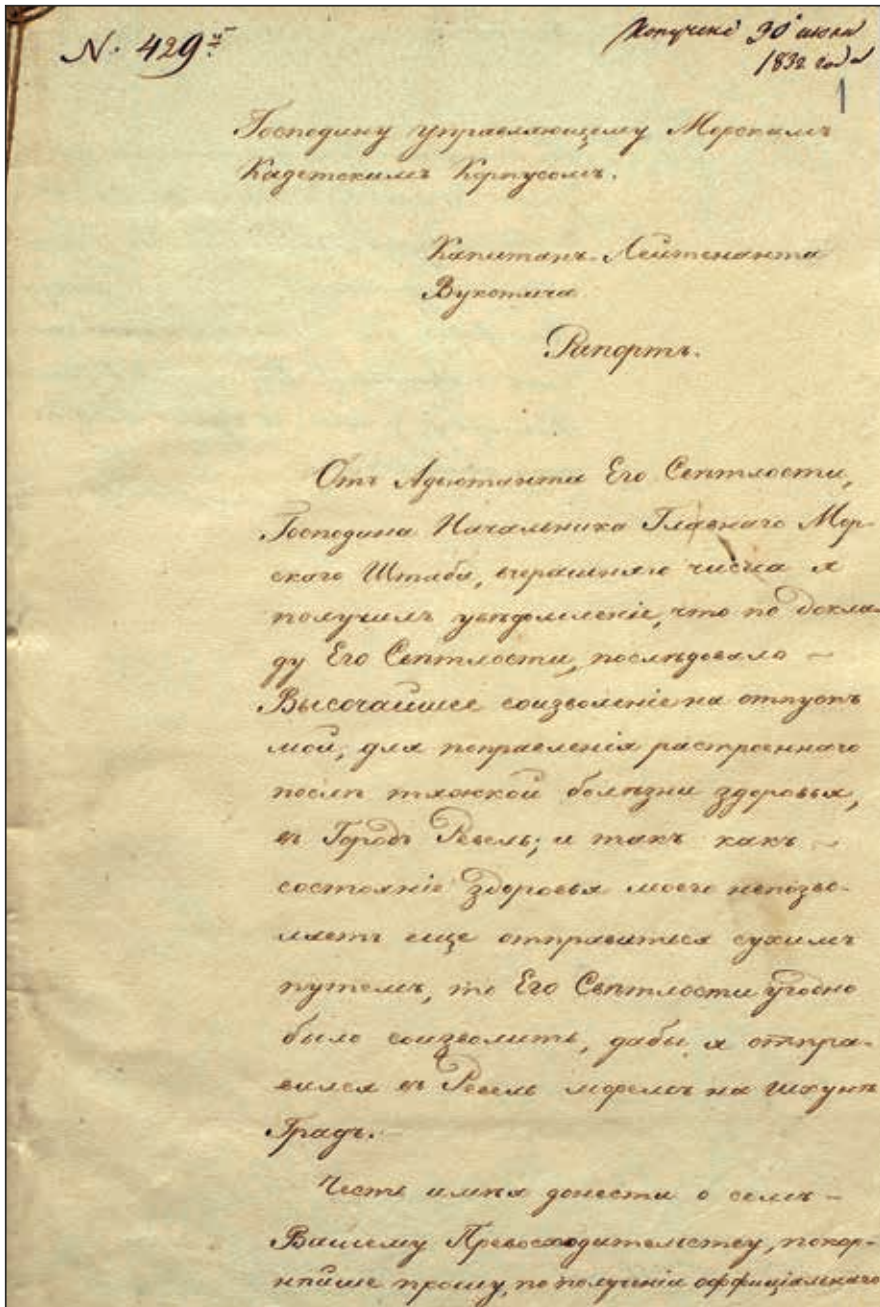 N. 429й
Получено 30 июня
1832 года
1
Господину управляющему Морскимъ
Кадетскимъ Корпусомъ.
Капитанъ-Лейтенанта
Вукотича
Рапортъ.
Отъ Адъютанта Его Свѣтлости,
Господина Начальника Главнаго Мор-
скаго Штаба, вчерашняго числа я
получилъ увѣдомленіе, что по докла-
ду Его Свѣтлости, послѣдовало –
Высочайшее соизволеніе на отпускъ
мой, для поправленія растроеннаго
послѣ тяжкой болѣзни здоровья,
въ Городъ Ревель; и такъ какъ –
состояніе здоровья моего непозво-
ляетъ еще отправиться сухимъ
путемъ, то Его Свѣтлости угодно
было соизволить, дабы я отпра-
вился въ Ревель моремъ на шхунѣ
Градъ.
Честь имѣя донести о семъ –
Вашему Превосходительству, покор-
нѣйше прошу, по полученіи оффиціальнаго